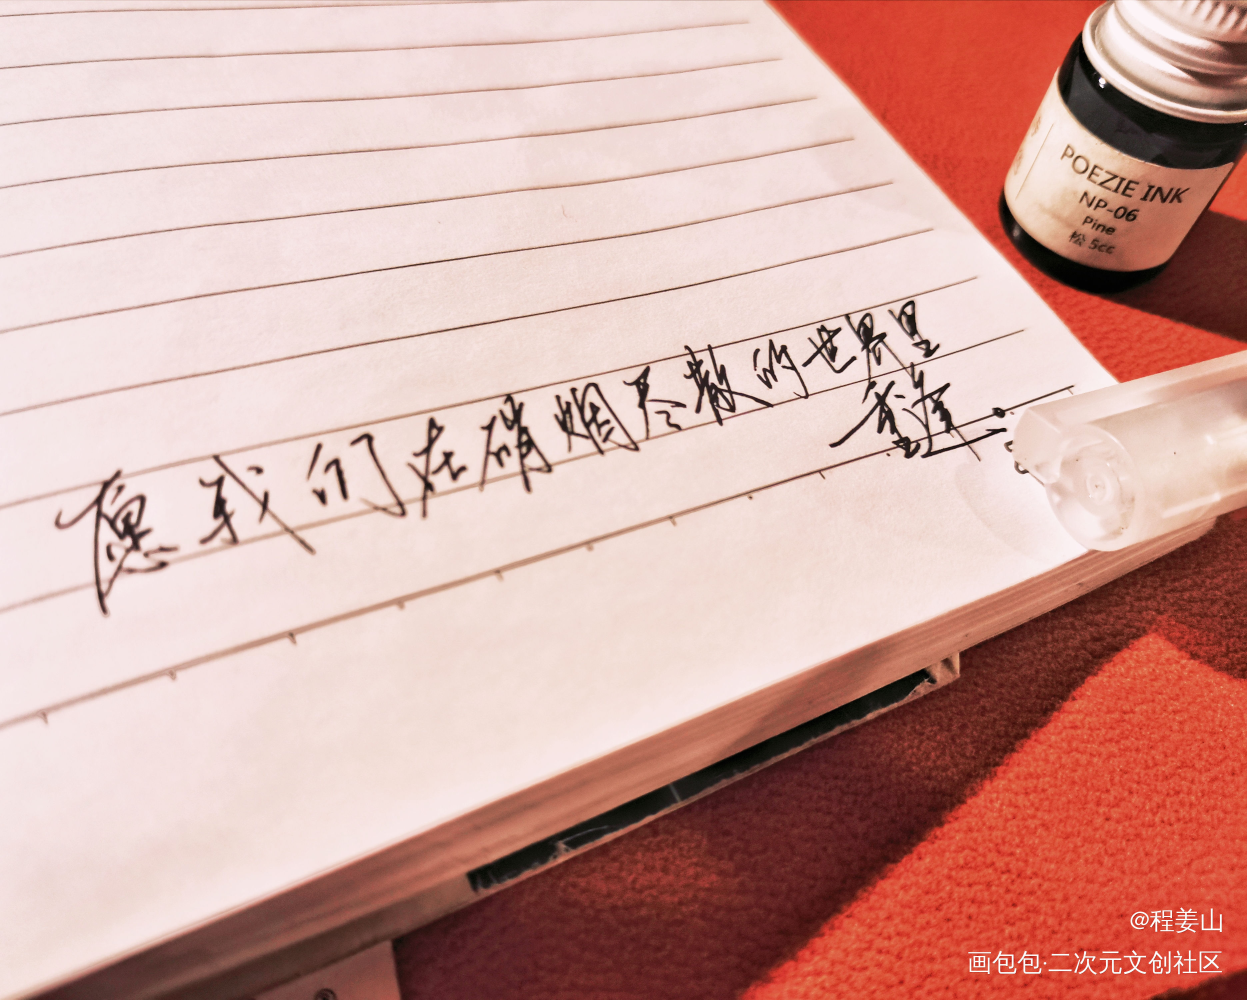 POEZIE INK
NP-06
Pine
松 5cc
愿我们在硝烟尽散的世界里
重逢。
@程姜山
画包包·二次元文创社区